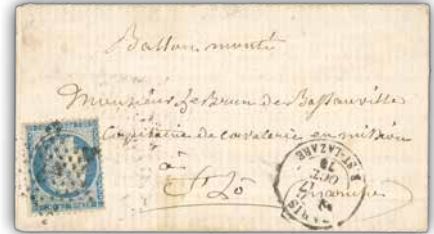 Ballon monté
Monsieur Le Brun de Bassauville
Capitaine de cavalerie en mission
à
St Lô
Manche
PARIS
R. ST-LAZARE
17
OCT.
70